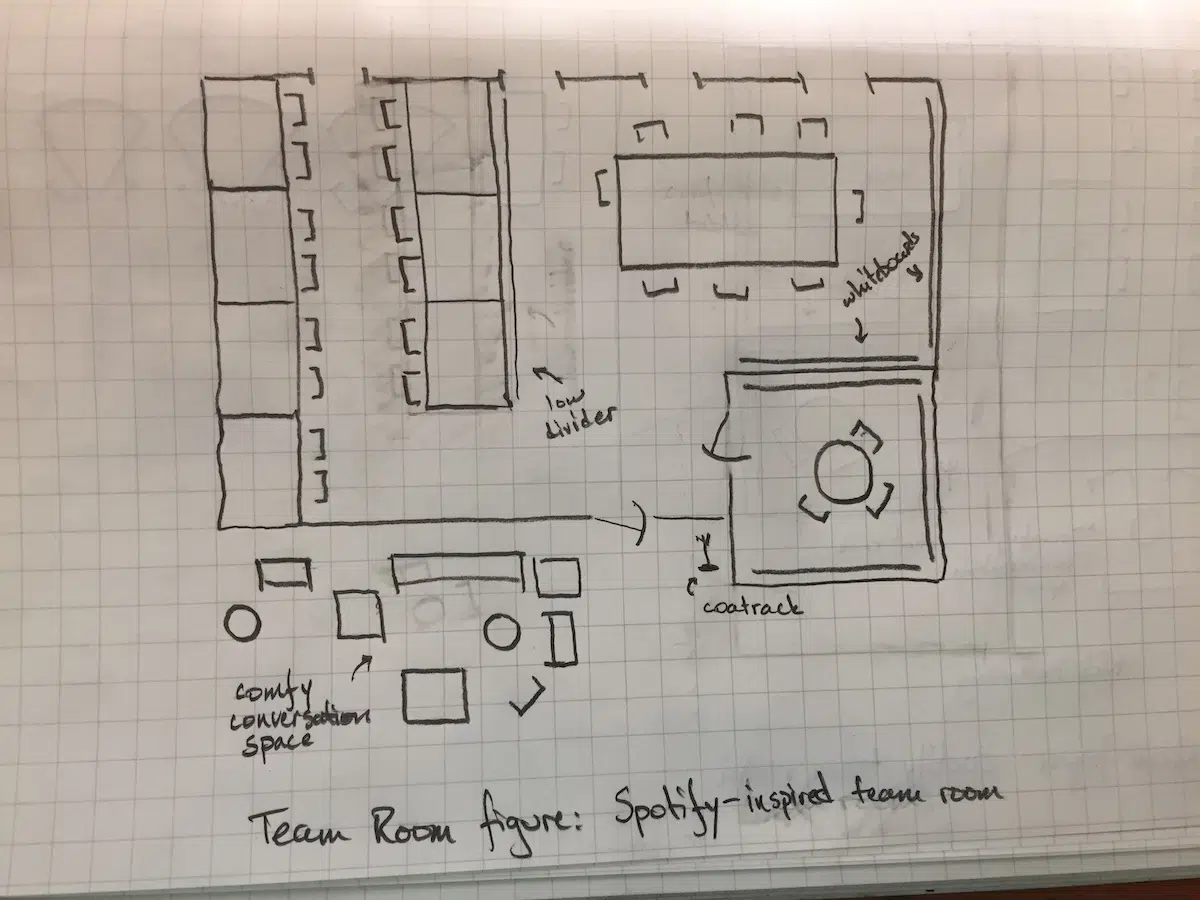 whiteboards
low
divider
coatrack
comfy
conversation
space
Team Room figure: Spotify-inspired team room